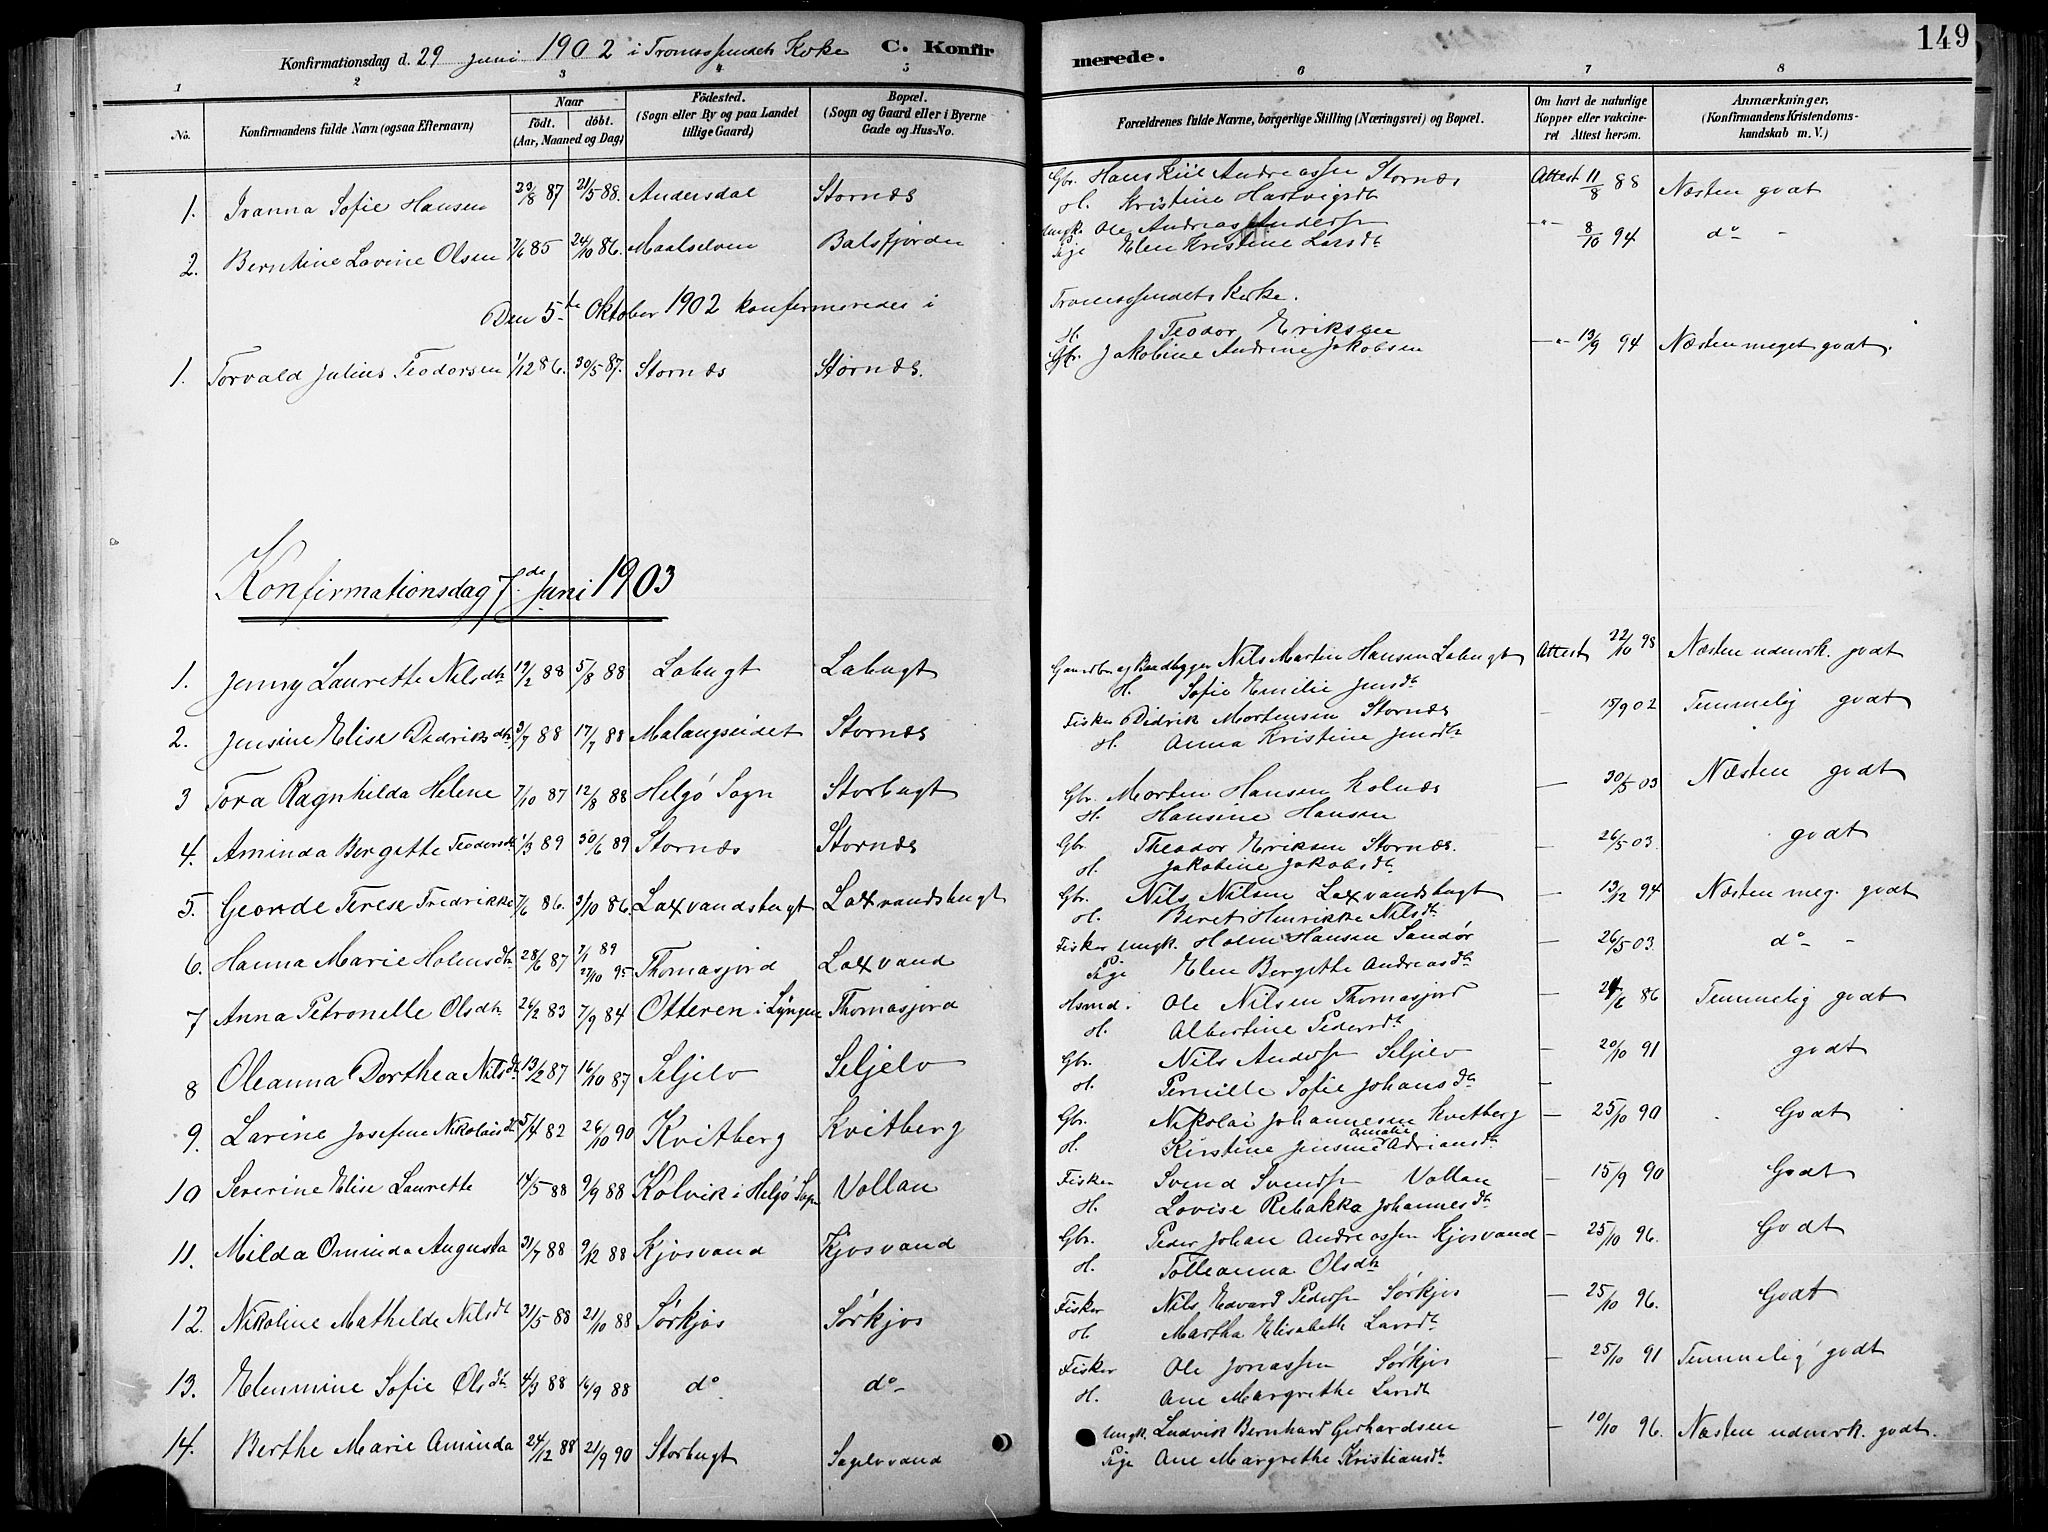 149
Konfirmationsdag d. 29 juni 1902 i Tromssundets Kirke C. Konfirmerede.
1 2 3 4 5 6 7 8
No. Konfirmandens fulde Navn (ogsaa Efternavn) Naar født. døbt. (Aar, Maaned og Dag) Födested. (Sogn eller By og paa Landet tillige Gaard) Bopæl. (Sogn og Gaard eller i Byerne Gade og Hus-No. Forældrenes fulde Navne, borgerlige Stilling (Næringsvei) og Bopæl. Om havt de naturlige Kopper eller vakcineret Attest herom. Anmærkninger. (Konfirmandens Kristendomskundskab m. V.)
1. Ivanna Sofie Hansen 23/8 87 21/5 88. Andersdal Stornæs Gbr. Hans Kiil Andreassen Stornæs Attest 11/8 88 Næsten godt
H. Kristine Hartvigsdt
2. Berntine Lavine Olsen 7/6 85 24/10 86. Maalselven Balsfjorden Ungk. Ole Andreas Anderss. -"- 8/10 94 do -
Pige Elen Kristine Larsdt
Den 5te Oktober 1902 konfirmeredes i Tromssundets Kirke.
H. Teodor Eriksen
1. Torvald Julius Teodorsen 1/12 86. 30/5 87. Stornæs Stornæs. Gbr. Jakobine Andrine Jakobsen -"- 13/9 94 Næsten meget godt.
Konfirmationsdag 7de Juni 1903
1. Jenny Laurette Nilsdtr 19/2 88 5/8 88 Labugt Labugt Gaardbr. og Baadbygger Nils Martin Hansen Labugt Attest 22/10 98 Næsten udmrk. godt
H. Sofie Emilie Jensdt
2. Jensine Elise Didriksdtr 3/7 88 17/7 88 Malangseidet Stornæs Fisker Didrik Mortensen Stornæs - 15/9 02 Temmelig godt
H. Anna Kristine Jensdtr
3 Tora Ragnhilda Helene 7/10 87 12/8 88 Helgö Sogn Storbugt Gbr. Morten Hansen Holnæs - 30/5 03 Næsten godt
H. Hansine Hansen
4. Aminda Bergette Teodorsdt 1/3 89 30/6 89 Stornæs Stornæs Gbr. Theodor Eriksen Stornæs. - 26/5 03. godt
H. Jakobine Jakobsdtr
5. Georde Terese Fredrikke 7/6 86. 3/10 86. Laxvandsbugt Laxvandsbugt Gbr. Nils Nilsen Laxvandsbugt - 13/12 94 Næsten meg. godt
H. Beret Henrikke Nilsdt
6. Hanna Marie Holmsdtr 28/6 87 7/1 89 27/10 95 Thomasjord Laxvand Fisker Ungk. Holm Hansen Sandør - 26/5 03. do -
Pige Elen Bergette Andreasdt
7 Anna Petronelle Olsdtr 26/2 83 7/9 84 Otteren i Lyngen Thomasjord Hsmd. Ole Nilsen Thomasjord - 24/6 86 Temmelig godt
H. Albertine Pedersdt
8 Oleanna Dorthea Nilsdt 13/2 87 16/10 87 Seljelv Seljelv Gbr. Nils Anderss. Seljelv - 20/10 91 godt
H. Pernille Sofie Johansdtr -
9. Larine Josefine Nikolaisdt 5/4 82 26/10 90 Kvitberg Kvitberg Gbr. Nikolai Johannesen Kvitberg - 25/10 90 Godt
H. Kirstine Jensine Amalie Adriansdtr
10 Severine Elise Laurette 14/5 88 9/9 88 Kolvik i Helgö Sogn Vollan Fisker Svend Svends. Vollan - 15/9 90 Godt
H. Lovise Rebakka Johannesdtr
11. Milda Ominda Augusta 31/7 88 9/12 88 Kjosvand Kjosvand Gbr. Peder Johan Andreassen Kjosvand - 25/10 96. Godt
H. Tolleanna Olsdtr
12. Nikoline Mathilde Nilsdt 31/5 88 21/10 88 Sørkjos Sørkjos Fisker Nils Edvard Peders. Sørkjos - 25/10 96. Godt
H Martha Elisabeth Larsdtr
13. Elenmine Sofie Olsdtr 4/3 88 16/9 88 do do - Fisker Ole Jonassen Sørkjos - 25/10 91 Temmelig godt
H. Ane Margrethe Larsdt
14. Berthe Marie Aminda 24/12 88 21/9 90 Storbugt Sagelvvand Ungk. Ludvik Bernhard Gerhardsen - 10/10 96. Næsten udmrk. godt.
Pige Ane Margrethe Kristiansdtr